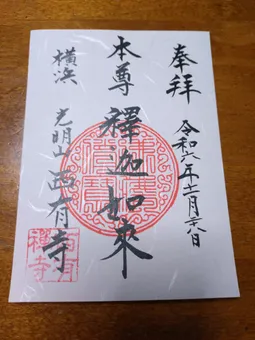 奉拝
令和六年十一月二八日
本尊
釋迦如來
横浜
光明山
西有寺
西有
禅寺